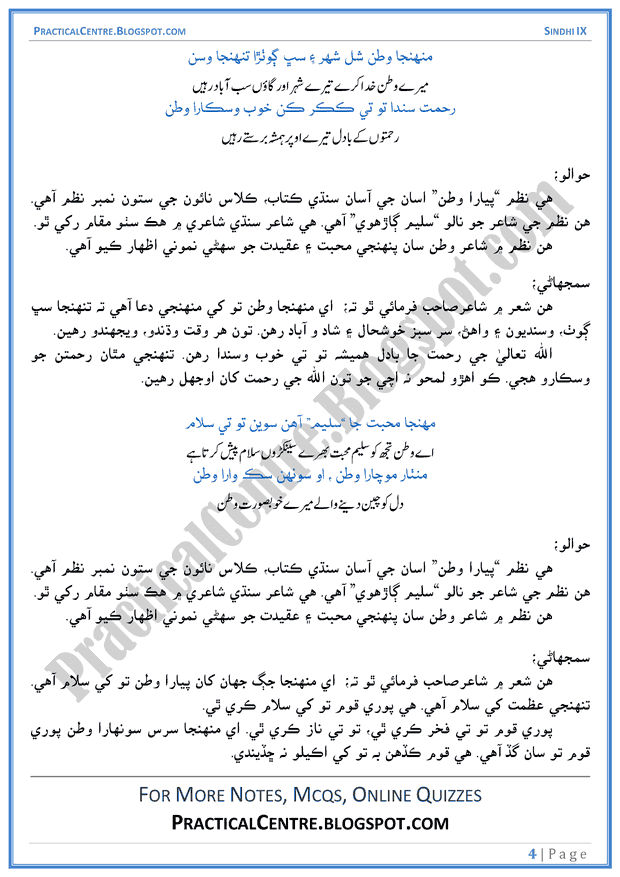 PRACTICALCENTRE.BLOGSPOT.COM
SINDHI IX
منهنجا وطن شل شهر ۽ سڀ ڳوٺڙا تنهنجا وسن
میرے وطن خدا کرے تیرے شہر اور گاؤں سب آباد رہیں
رحمت سندا تو تي ڪڪر ڪن خوب وسڪارا وطن
رحمتوں کے بادل تیرے اوپر ہمشہ برستے رہیں
حوالو؛
هي نظم “پيارا وطن” اسان جي آسان سنڌي ڪتاب، ڪلاس نائون جي ستون نمبر نظم آهي.
هن نظم جي شاعر جو نالو “سليم ڳاڙهوي” آهي. هي شاعر سنڌي شاعري ۾ هڪ سٺو مقام رکي ٿو.
هن نظم ۾ شاعر وطن سان پنهنجي محبت ۽ عقيدت جو سهڻي نموني اظهار ڪيو آهي.
سمجهاڻي؛
هن شعر ۾ شاعرصاحب فرمائي ٿو تہ؛ اي منهنجا وطن تو کي منهنجي دعا آهي تہ تنهنجا سڀ
ڳوٺ، وسنديون ۽ واهڻ، سر سبز خوشحال ۽ شاد و آباد رهن. تون هر وقت وڌندو، ويجهندو رهين.
الله تعاليٰ جي رحمت جا بادل هميشہ تو تي خوب وسندا رهن. تنهنجي مٿان رحمتن جو
وسڪارو هجي. ڪو اهڙو لمحو نہ اچي جو تون الله جي رحمت کان اوجهل رهين.
مهنجا محبت جا “سليم” آهن سوين تو تي سلام
اے وطن تجھ کو سلیم محبت بھرے سینکڑوں سلام پیش کرتا ہے
منٺار موچارا وطن ، او سونهن سڪ وارا وطن
دل کو چین دینے والے میرے خوبصورت وطن
حوالو؛
هي نظم “پيارا وطن” اسان جي آسان سنڌي ڪتاب، ڪلاس نائون جي ستون نمبر نظم آهي.
هن نظم جي شاعر جو نالو “سليم ڳاڙهوي” آهي. هي شاعر سنڌي شاعري ۾ هڪ سٺو مقام رکي ٿو.
هن نظم ۾ شاعر وطن سان پنهنجي محبت ۽ عقيدت جو سهڻي نموني اظهار ڪيو آهي.
سمجهاڻي؛
هن شعر ۾ شاعرصاحب فرمائي ٿو تہ؛ اي منهنجا جڳ جهان کان پيارا وطن تو کي سلام آهي.
تنهنجي عظمت کي سلام آهي. هي پوري قوم تو کي سلام ڪري ٿي.
پوري قوم تو تي فخر ڪري ٿي، تو تي ناز ڪري ٿي. اي منهنجا سرس سونهارا وطن پوري
قوم تو سان گڏ آهي. هي قوم ڪڏهن بہ تو کي اڪيلو نہ ڇڏيندي.
FOR MORE NOTES, MCQS, ONLINE QUIZZES
PRACTICALCENTRE.BLOGSPOT.COM
4 | Page
PracticalCentre.Blogspot.com